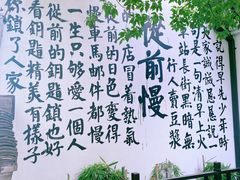 從前慢
記得早先少年時
大家誠誠懇懇說
一句是一句清早上火
車站長街黑暗無
行人賣豆漿
的小店冒着熱氣
從前的日色變得
慢車馬郵件都慢
一生只夠愛一個人
從前的鎖也好
看鑰匙精美有樣子
你鎖了人家